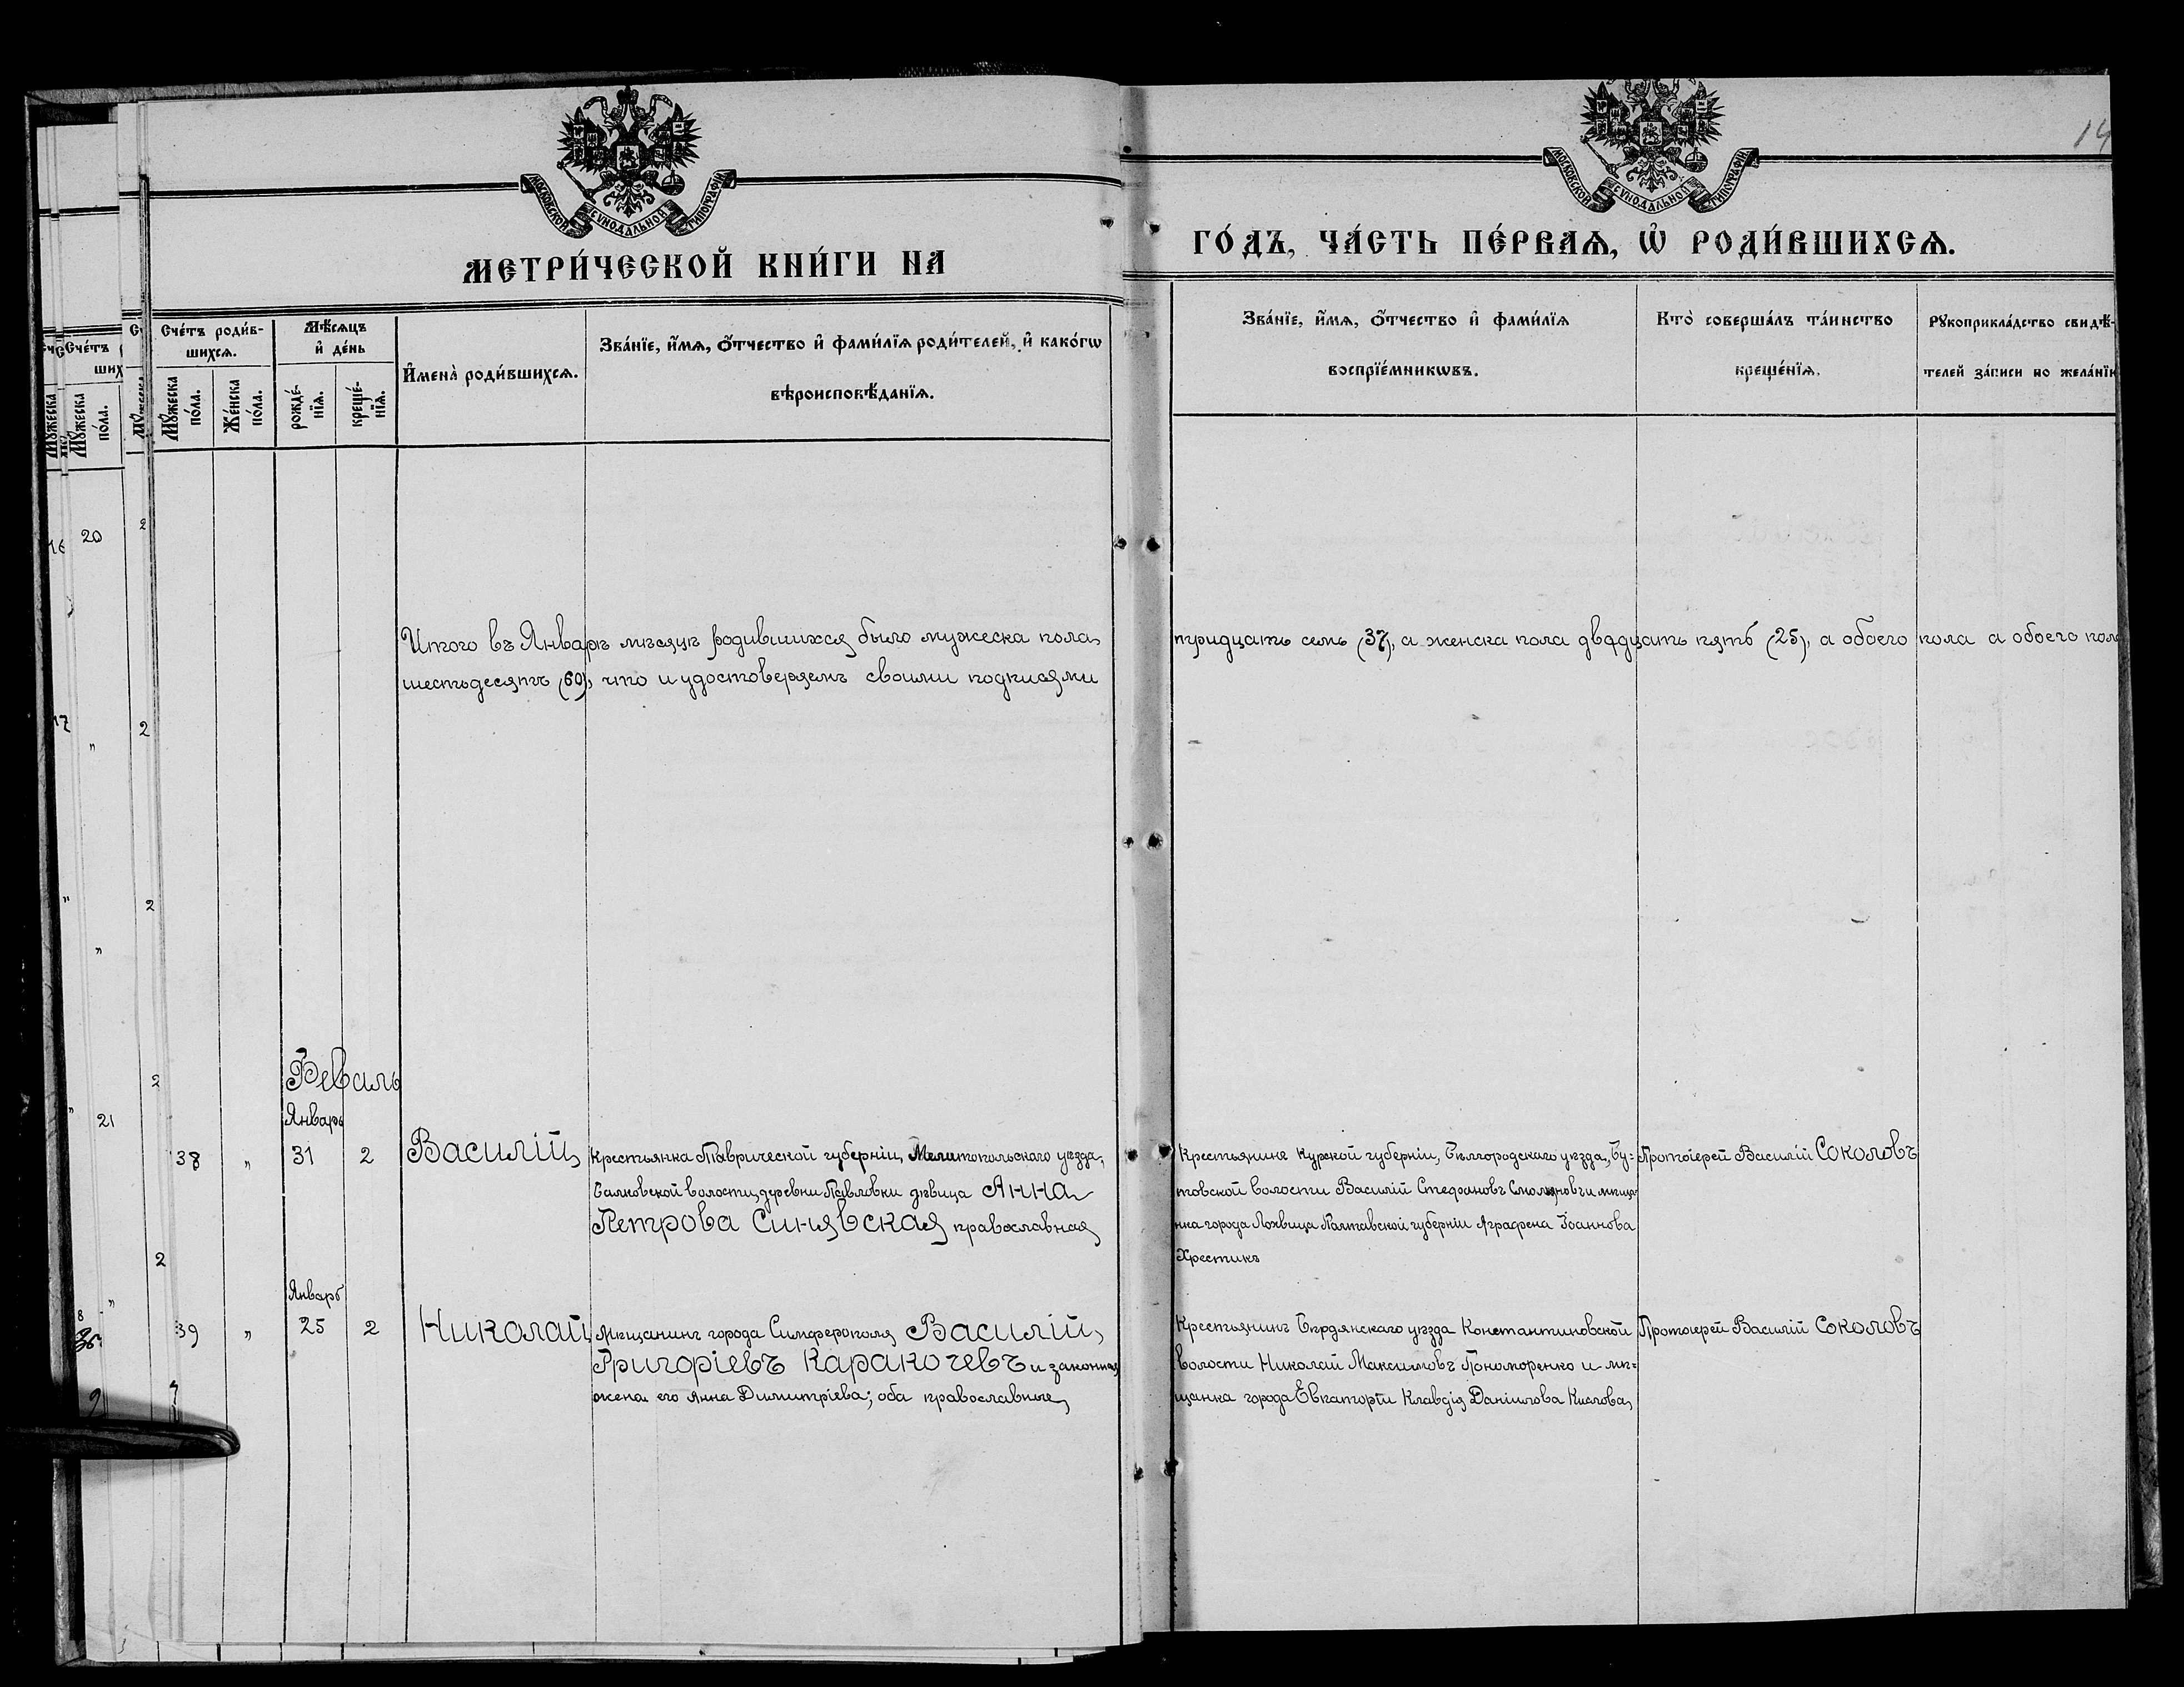 МОСКОВСКОЙ СУНОДАЛЬНОЙ ТИПОГРАФІИ
МОСКОВСКОЙ СУНОДАЛЬНОЙ ТИПОГРАФІИ
14
МЕТРИ́ЧЕСКОЙ КНИ́ГИ НА
ГО́ДЪ, ЧА́СТЬ ПЕ́РВАѦ, Ѡ҆ РОДИ́ВШИХСѦ.
Сче́тъ роди́в-
шихсѧ.
Мѹжеска
по́ла.
Же́нска
по́ла.
Мѣ́сѧцъ
и҆ де́нь
рожде́-
нїѧ.
креще́-
нїѧ.
И҆мена̀ роди́вшихсѧ.
Зва́нїе, и҆́мѧ, ѻ҆́тчество и҆ фами́лїѧ роди́телей, и҆ како́гѡ
вѣроисповѣ́данїѧ.
Зва́нїе, и҆́мѧ, ѻ҆́тчество и҆ фами́лїѧ
воспрїе́мникѡвъ.
Кто̀ соверша́лъ та́инство
креще́нїѧ.
Рꙋкоприкла́дство свидѣ́-
телей за́писи по жела́нїю
20
Итого въ Январѣ мѣсяцѣ родившихся было мужеска пола
тридцать семь (37), а женска пола двадцать пять (25), а обоего пола а обоего пола
шестьдесятъ (60), что и удостоверяемъ своими подписями
17
21
Феваль
Январь
38 „ 31 2 Василій
Крестьянка Таврической губерніи, Мелитопольскаго уѣзда,
Балковской волости, деревни Павловки дѣвица Анна
Петрова Синявская православная
Крестьянинъ Курской губерніи, Бѣлгородскаго уѣзда, Бу=
товской волости Василій Стефановъ Смоляновъ и мѣща-
нка города Лохвица Полтавской губерніи Аграфена Іоаннова
Хрестикъ
Протоіерей Василій Соколовъ
Январь
39 „ 25 2 Николай
Мѣщанинъ города Симферополя Василій
Григоріевъ Каракочевъ и законная
жена его Анна Димитріева; оба православные
Крестьянинъ Бердянскаго уѣзда Константиновской
волости Николай Максимовъ Пономоренко и мѣ=
щанка города Евпаторіи Клавдія Даніилова Кислова
Протоіерей Василій Соколовъ